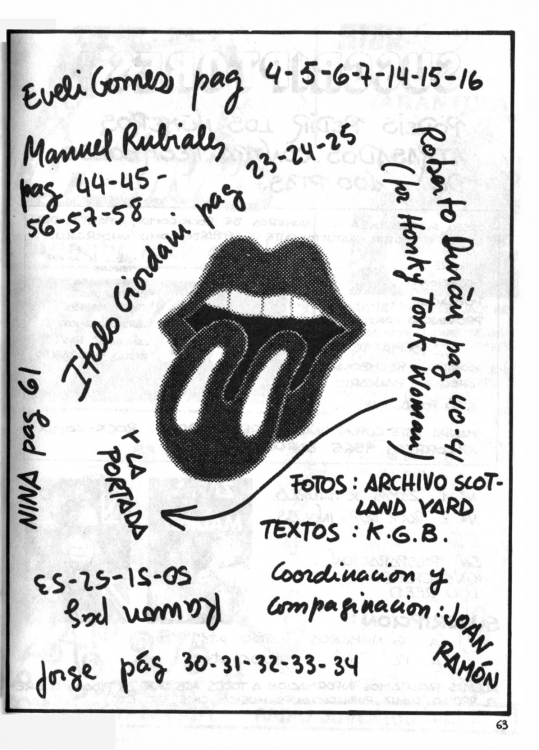 Eveli Gomes pag 4-5-6-7-14-15-16
Manuel Rubiales
pag 44-45-
56-57-58
Italo Giordani pag 23-24-25
Roberto Durán pag 40-41
(la Honky Tonk Woman)
NINA pag 61
Y LA
PORTADA
FOTOS : ARCHIVO SCOT-
LAND YARD
TEXTOS : K.G.B.
Ramon pag
50-51-52-53
Coordinacion y
compaginacion : JOAN
RAMÓN
Jorge pág 30-31-32-33-34
63